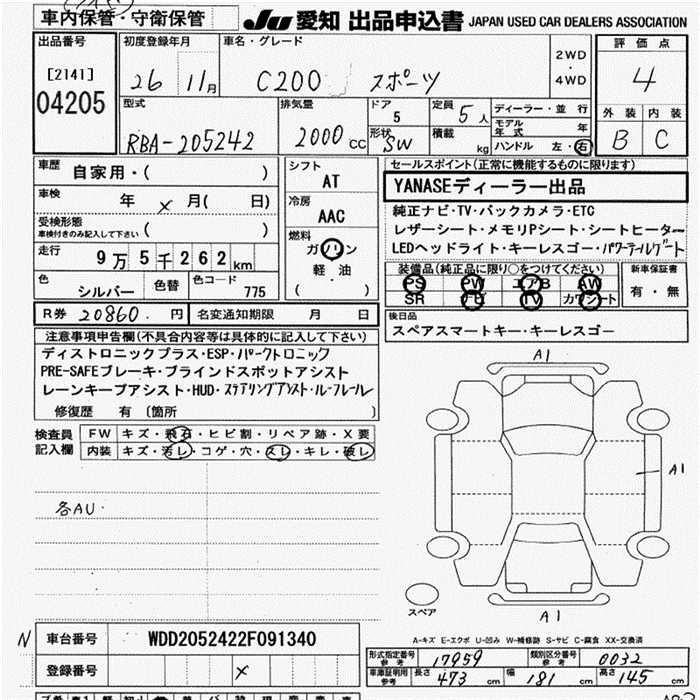 車内保管・守衛保管
JU 愛知 出品申込書 JAPAN USED CAR DEALERS ASSOCIATION
出品番号
[2141]
04205
初度登録年月
26 11月
車名・グレード
C200 スポーツ
2WD
・
4WD
評価点
4
外装 内装
B C
型式
RBA-205242
排気量
2000 CC
ドア
5
形状
SW
定員
5人
積載
kg
ディーラー・並行
モデル年式 年
ハンドル 左・右
車歴
自家用・( )
車検
年 × 月( 日)
受検形態
車検付きのみ記入して下さい ・( )
走行
9万5千262km
色
シルバー
色替
色コード
775
シフト
AT
冷房
AAC
燃料
ガソリン
軽・油
( )
セールスポイント(正常に機能するものに限ります)
YANASEディーラー出品
純正ナビ・TV・バックカメラ・ETC
レザーシート・メモリPシート・シートヒーター
LEDヘッドライト・キーレスゴー・パワーテールゲート
装備品(純正品に限り○をつけてください)
PS PW エアB AW
SR ナビ TV カワシート
新車保証書
有・無
R券 20860.円
名変通知期限 月 日
後日品
スペアスマートキー・キーレスゴー
注意事項申告欄(不具合内容等は具体的に記入して下さい)
ディストロニックプラス・ESP・パークトロニック
PRE-SAFEブレーキ・ブラインドスポットアシスト
レーンキープアシスト・HUD・ステアリングアシスト・ルーフレール
修復歴 有 〔箇所 〕
検査員
記入欄
FW キズ・飛石・ヒビ割・リペア跡・X要
内装 キズ・汚レ・コゲ・穴・スレ・キレ・破レ
各AU.
A1
A1
スペア
A1
A-キズ E-エクボ U-凹み W-補修跡 S-サビ C-腐食 XX-交換済
N
車台番号 WDD2052422F091340
登録番号 ×
形式指定番号
参考
17959
類別区分番号
参考
0032
車庫証明用
参考
長さ 473 cm
幅 181 cm
高さ 145 cm